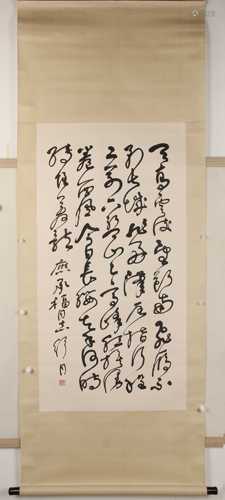 天高雲淡望斷南飛雁不
到長城非好漢屈指行程
二萬六盤山上高峰紅旗漫
卷西風今日長纓在手何時
縛住蒼龍 同志 舒同